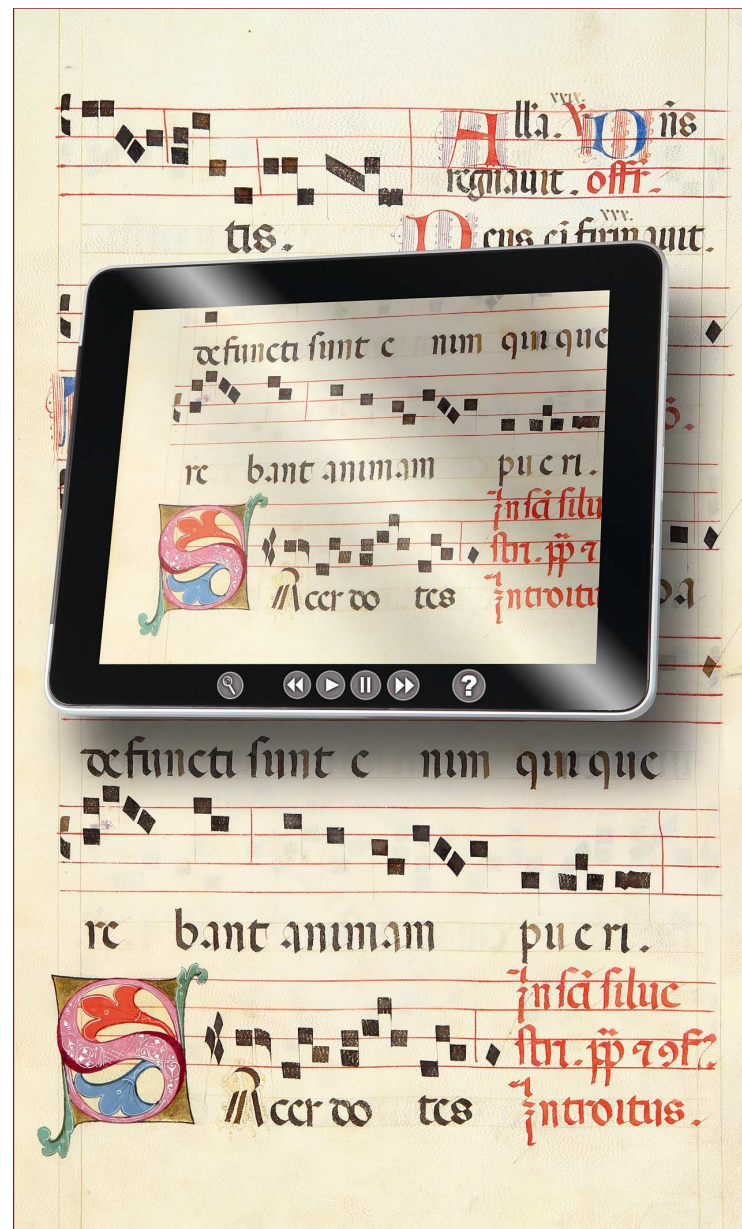 All'a. V Dñs
regnauit. offr.
tis. Deus eĩ firmauit.
defuncti sunt e nim quique
re bant animam pueri.
In sc̃i silu
stri. pp̃ ⁊
Sacerdo tes Introitu
?
defuncti sunt e nim quique
re bant animam pueri.
In sc̃i silue
stri. pp̃ ⁊ ꝯf
Sacerdo tes Introitus.